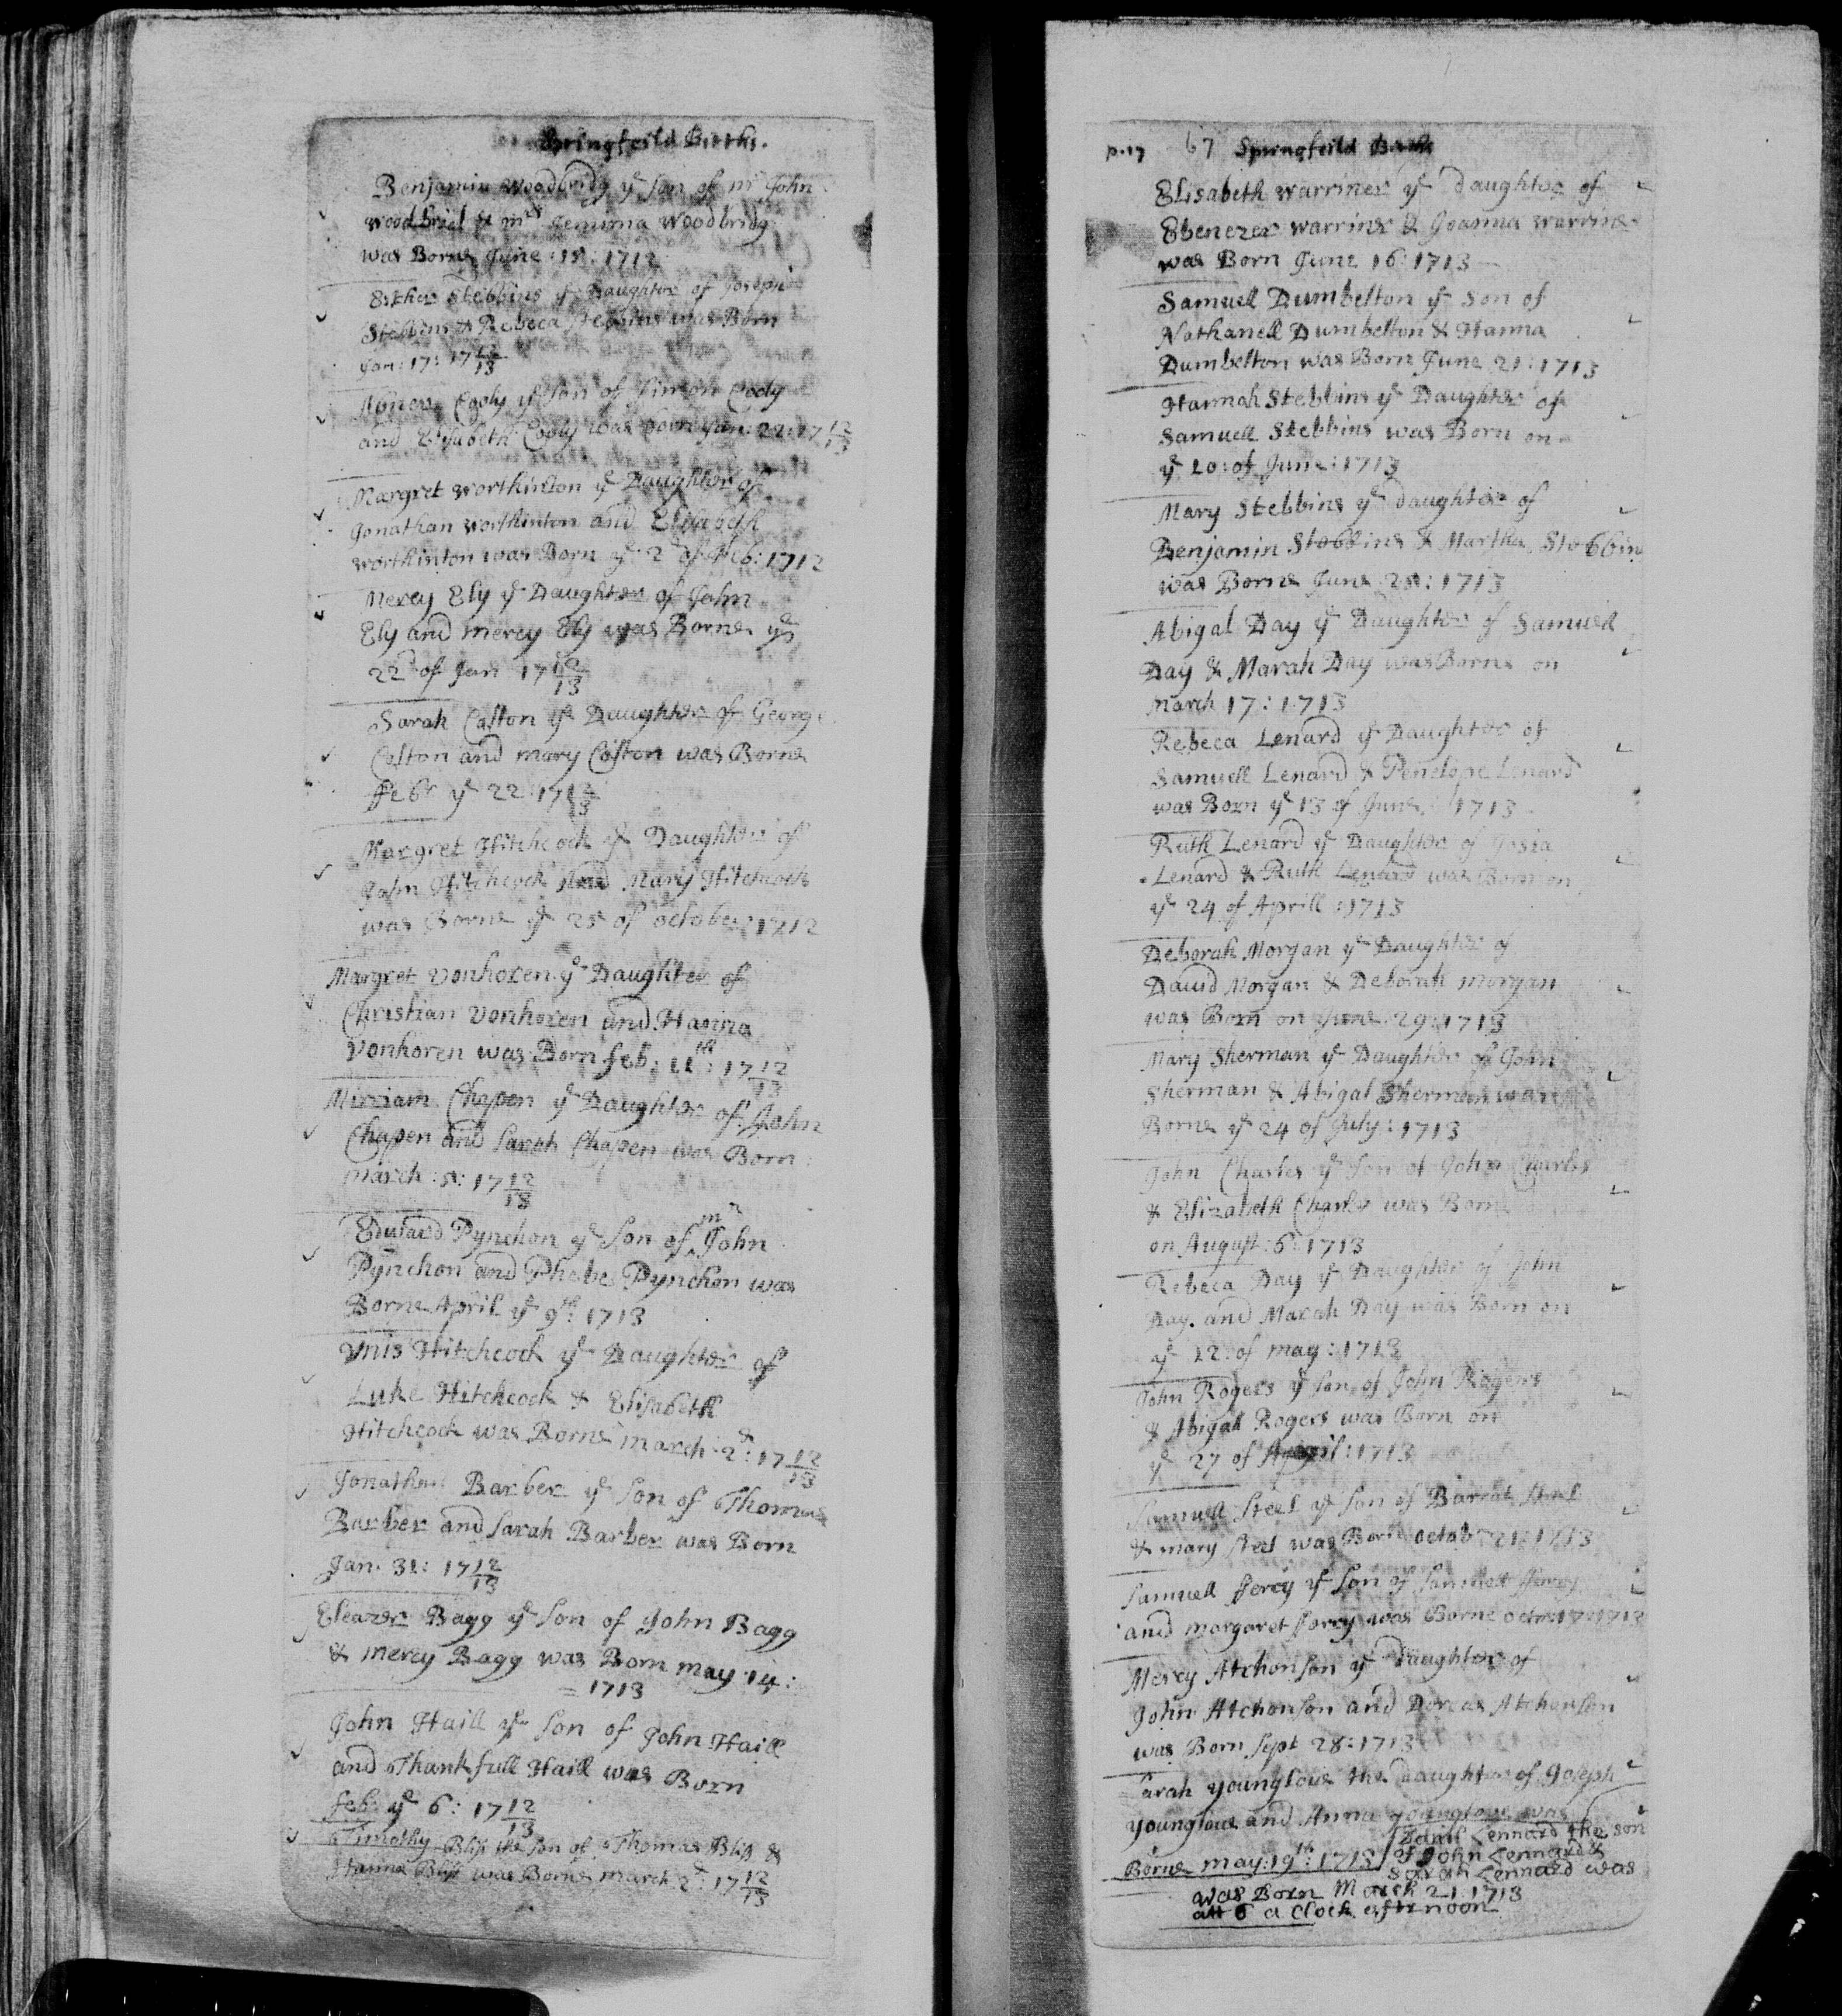 Springfeild Births.
Benjamin Woodbridg ye son of mr John
woodbrid & mrs Jemima Woodbridg
was Borne June : 18 : 1712
Esther Stebbins ye Daughter of Joseph
Stebbins & Rebeca Stebbins was Born
Jan: 17: 17 12/13
Abner Cooly ye son of Simon Cooly
and Elisabeth Cooly was born Jan: 22: 17 12/13
Margret worthinton ye Daughter of
Jonathan worthinton and Elisabeth
worthinton was Born ye 2d of Feb: 1712
Mercy Ely ye Daughter of John
Ely and mercy Ely was Borne ye
22d of Jan 17 12/13
Sarah Colton ye Daughter of Georg
Colton and mary Colton was Borne
Febr ye 22: 17 12/13
Margret Hitchcock ye Daughter of
John Hitchcock And Mary Hitchcock
was Borne ye 28 of october 1712
Margret Vonhoren ye Daughter of
Christian Vonhoren and Hanna
Vonhoren was Born feb: 11th : 17 12/13
Mirriam Chapen ye Daughter of John
Chapen and Sarah Chapen was Born
march : 8: 17 12/13
Edward Pynchon ye Son of mr John
Pynchon and Phebe Pynchon was
Borne April ye 9th: 1713
Vnis Hitchcock ye Daughter of
Luke Hitchcock & Elisabeth
Hitchcock was Borne march 2d : 17 12/13
Jonathan Barber ye Son of Thomas
Barber and Sarah Barber was Born
Jan. 31: 17 12/13
Eleazer Bagg ye Son of John Bagg
& mercy Bagg was Born may 14 :
= 1713
John Haill ye Son of John Haill
and Thankfull Haill was Born
feb ye 6: 17 12/13
Timothy Bliss the Son of Thomas Bliss &
Hanna Bliss was Borne march 2d : 17 12/13
p. 17 67 Springfeild Births
Elisabeth warriner ye daughter of
Ebenezer warriner & Joanna warriner
was Born June 16: 1713
Samuell Dumbelton ye Son of
Nathanell Dumbelton & Hanna
Dumbelton was Born June 21: 1713
Hannah Stebbins ye Daughter of
Samuell Stebbins was Born on
ye 20: of June: 1713
Mary Stebbins ye daughter of
Benjamin Stebbins & Martha Stebbins
was Borne June 28: 1713
Abigal Day ye Daughter of Samuell
Day & Marah Day was Borne on
march 17: 1713
Rebeca Lenard ye Daughter of
Samuell Lenard & Penelope Lenard
was Born ye 13 of June 1713
Ruth Lenard ye Daughter of Josia
Lenard & Ruth Lenard was Born on
ye 24 of Aprill : 1713
Deborah Morgan ye Daughter of
David Morgan & Deborah morgan
was Born on June 29: 1713
Mary Sherman ye Daughter of John
Sherman & Abigal Sherman ware
Borne ye 24 of July: 1713
John Charles ye Son of John Charles
& Elizabeth Charles was Born
on August: 6: 1713
Rebeca Day ye Daughter of John
Day. and Marah Day was Born on
ye 12: of may: 1713
John Rogers ye Son of John Rogers
& Abigal Rogers was Born on
ye 27 of April: 1713
Samuell Steel ye Son of Steel
& mary Steel was Born octobr 21: 1713
Samuell Ferey ye Son of Samuell Ferey
and margaret Ferey was Borne octr 17: 1712
Mercy Atchonson ye Daughter of
John Atchonson and Dorcas Atchonson
was Born Sept 28: 1713
Sarah younglove the daughter of Joseph
younglove and Anna younglove was
Borne may: 19th: 1713
Lennard the son
of John Lennard &
Sarah Lennard was
was Born March 21 1713
att 6 a Clock afternoon